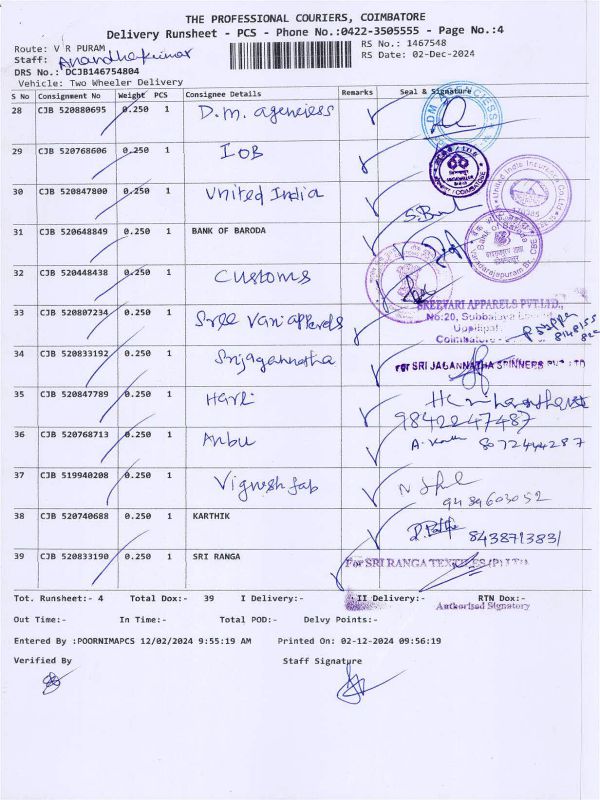 THE PROFESSIONAL COURIERS, COIMBATORE
Delivery Runsheet - PCS - Phone No.:0422-3505555 - Page No.:4
Route: V R PURAM RS No.: 1467548
Staff: Anandhakumar RS Date: 02-Dec-2024
DRS No.: DCJB146754804
Vehicle: Two Wheeler Delivery
S No Consignment No Weight PCS Consignee Details Remarks Seal & Signature
28 CJB 520880695 0.250 1 D.M. agenciess
29 CJB 520768606 0.250 1 IOB
30 CJB 520847800 0.250 1 United India
31 CJB 520648849 0.250 1 BANK OF BARODA
32 CJB 520448438 0.250 1 Customs
33 CJB 520807234 0.250 1 Sree Vari apparels
SREEVARI APPARELS PVT.LTD.,
No:20, Subbalaya
Coimbatore
34 CJB 520833192 0.250 1 Srijagannatha
For SRI JAGANNATHA SPINNERS PVT LTD
35 CJB 520847789 0.250 1 Hari
9842247487
36 CJB 520768713 0.250 1 Anbu
8072444287
37 CJB 519940208 0.250 1 Vignesh fab
9489603052
38 CJB 520740688 0.250 1 KARTHIK
8438713831
39 CJB 520833190 0.250 1 SRI RANGA
For SRI RANGA TEXTILES (P) LTD.
Tot. Runsheet:- 4 Total Dox:- 39 I Delivery:- II Delivery:- RTN Dox:-
Authorised Signatory
Out Time:- In Time:- Total POD:- Delvy Points:-
Entered By :POORNIMAPCS 12/02/2024 9:55:19 AM Printed On: 02-12-2024 09:56:19
Verified By Staff Signature